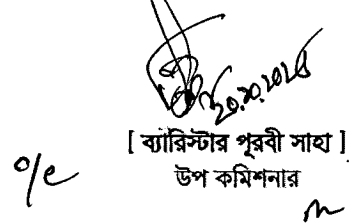 ২০.১০.২০২৫
[ ব্যারিস্টার পূরবী সাহা ]
উপ কমিশনার
o/c